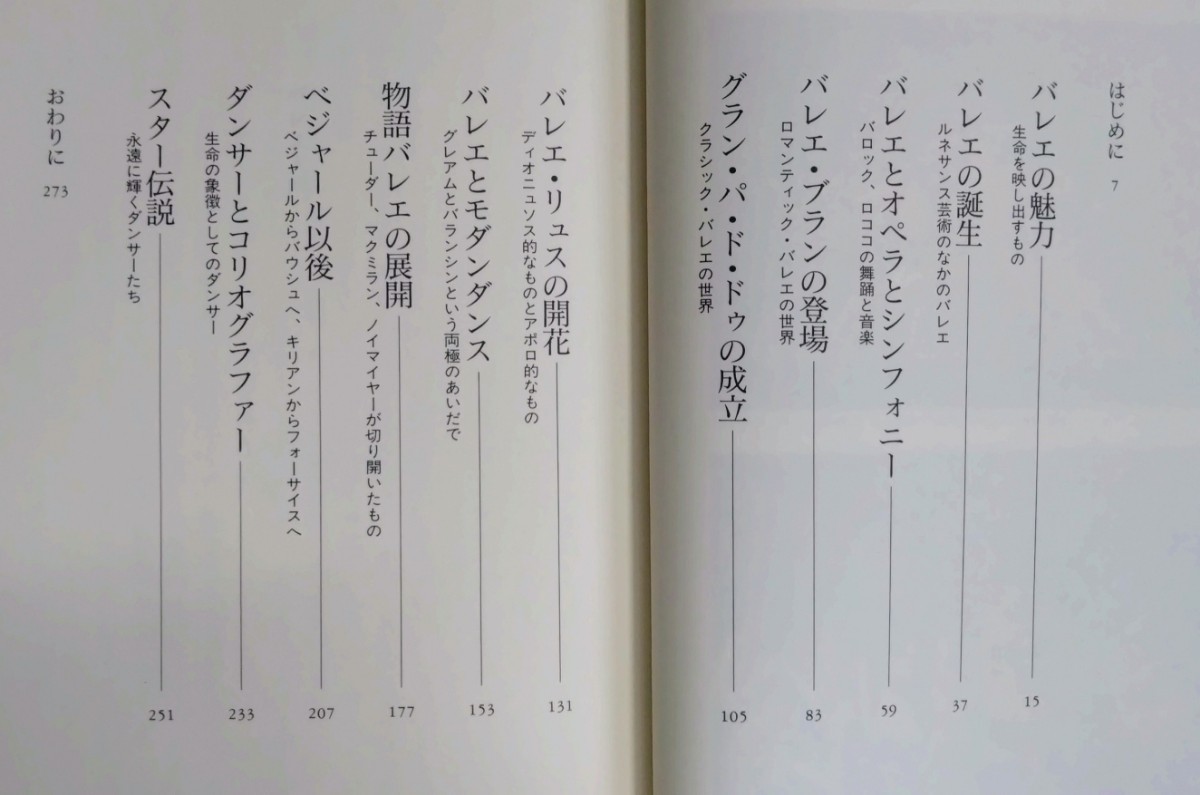 はじめに 7
バレエの魅力 15
生命を映し出すもの
バレエの誕生 37
ルネサンス芸術のなかのバレエ
バレエとオペラとシンフォニー 59
バロック、ロココの舞踊と音楽
バレエ・ブランの登場 83
ロマンティック・バレエの世界
グラン・パ・ド・ドゥの成立 105
クラシック・バレエの世界
バレエ・リュスの開花 131
ディオニュソス的なものとアポロ的なもの
バレエとモダンダンス 153
グレアムとバランシンという両極のあいだで
物語バレエの展開 177
チューダー、マクミラン、ノイマイヤーが切り開いたもの
ベジャール以後 207
ベジャールからバウシュへ、キリアンからフォーサイスへ
ダンサーとコリオグラファー 233
生命の象徴としてのダンサー
スター伝説 251
永遠に輝くダンサーたち
おわりに 273